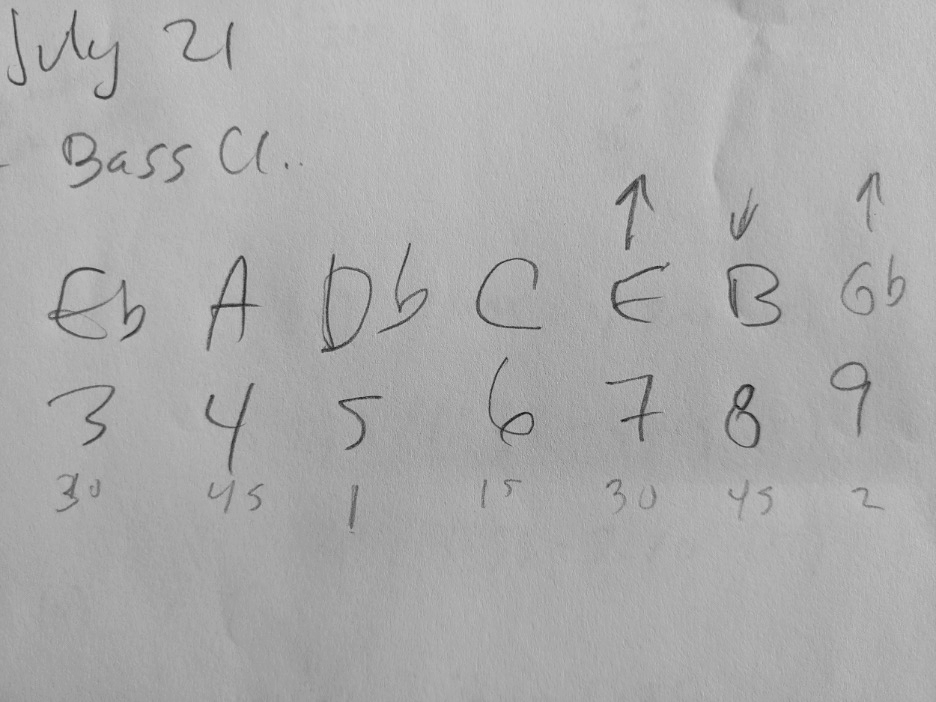 July 21
- Bass Cl..
↑ ↓ ↑
Eb A Db C E B Gb
3 4 5 6 7 8 9
30 45 1 15 30 45 2